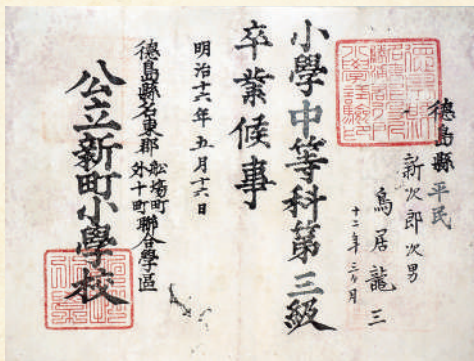 德島縣平民
新次郎次男
鳥居龍三
十二年三ヶ月
小學中等科第三級
卒業候事
明治十六年五月十六日
德島縣名東郡船場町
外十町聯合學區
公立新町小學校